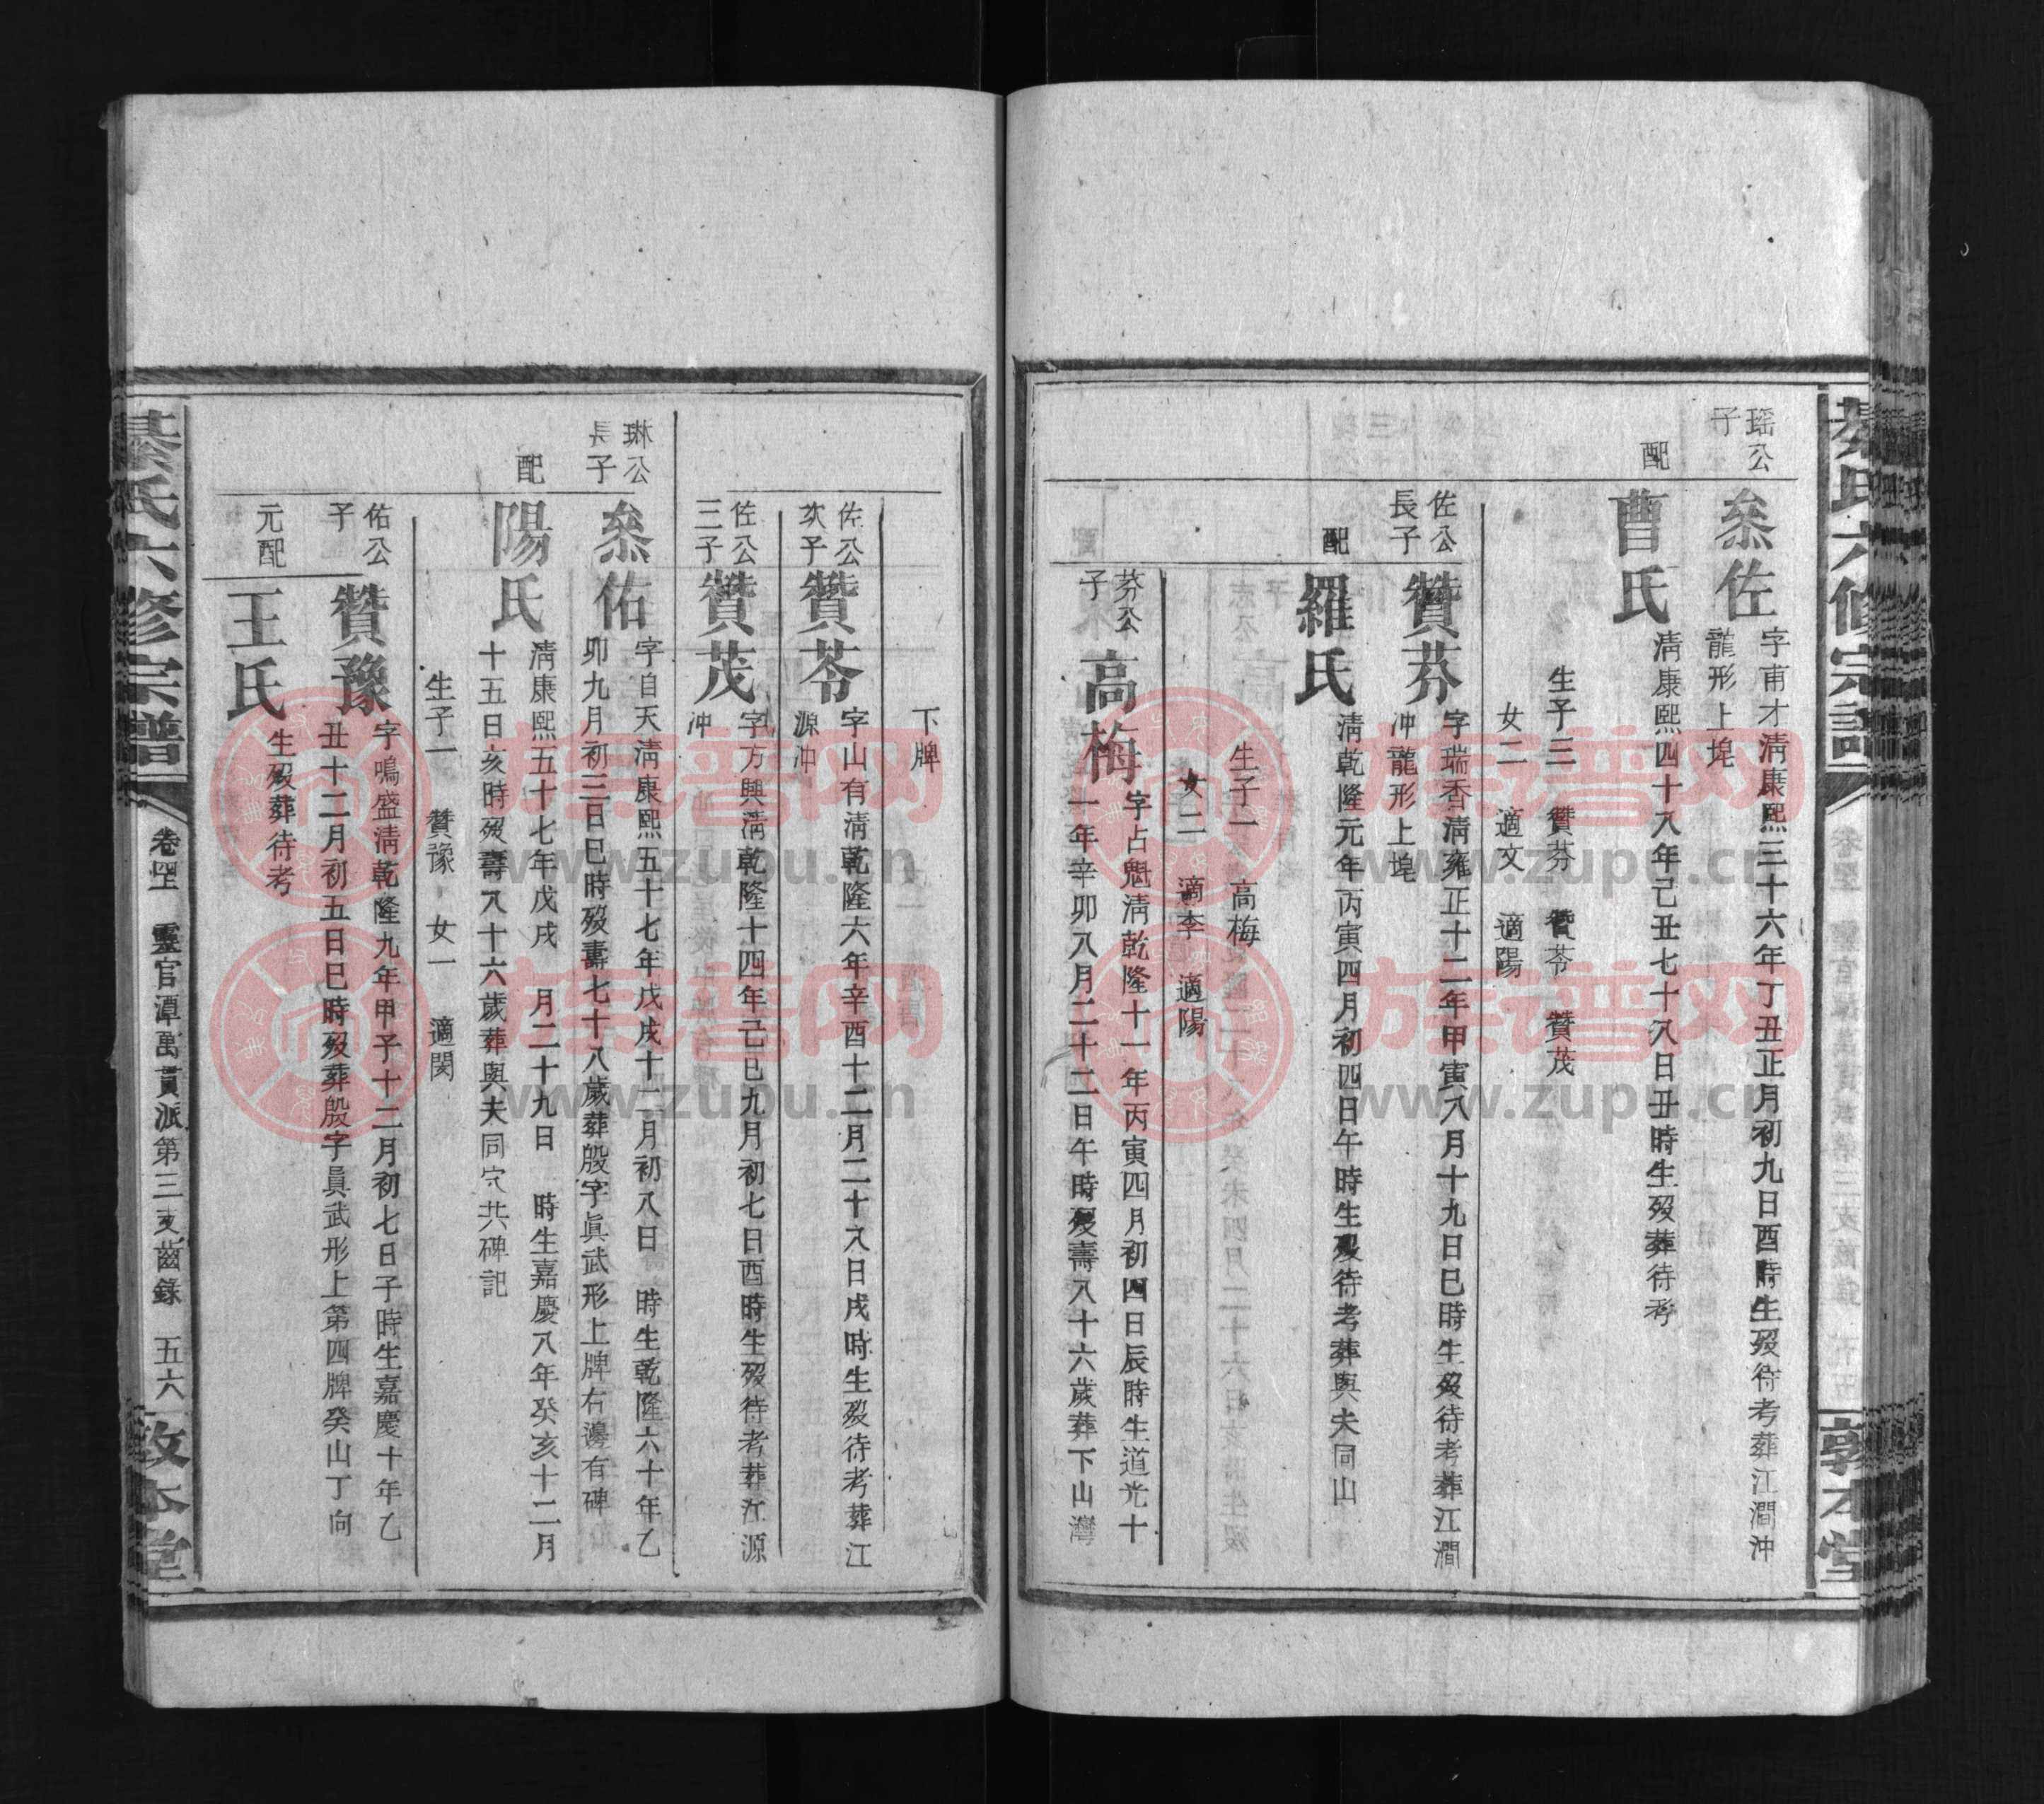 瑶公子
叅佐
字甫才淸康熙三十六年丁丑正月初九日酉時生歿待考葬江澗沖
龍形上㘵
配
曹氏
淸康熙四十八年己丑七十八日丑時生歿葬待考
生子三 贊芬 贊苓 贊茂
女二 適文 適陽
佐公長子
贊芬
字瑞香淸雍正十二年甲寅八月十九日巳時生歿待考葬江澗
沖龍形上㘵
配
羅氏
淸乾隆元年丙寅四月初四日午時生歿待考葬與夫同山
生子一 高梅
女二 適李 適陽
芬公子
高梅
字占魁淸乾隆十一年丙寅四月初四日辰時生道光十
一年辛卯八月二十二日午時歿壽八十六歲葬下山灣
敦本堂
下牌
佐公次子
贊苓
字山有淸乾隆六年辛酉十二月二十八日戌時生歿待考葬江
源沖
佐公三子
贊茂
字方興淸乾隆十四年己巳九月初七日酉時生歿待考葬江源
沖
琳公長子
叅佑
字自天淸康熙五十七年戊戌十二月初八日 時生乾隆六十年乙
卯九月初三日巳時歿壽七十八歲葬殷字眞武形上牌右邊有碑
配
陽氏
淸康熙五十七年戊戌 月二十九日 時生嘉慶八年癸亥十二月
十五日亥時歿壽八十六歲葬與夫同穴共碑記
生子一 贊豫 女一 適閔
佑公子
贊豫
字鳴盛淸乾隆九年甲子十二月初七日子時生嘉慶十年乙
丑十二月初五日巳時歿葬殷字眞武形上第四牌癸山丁向
元配
王氏
生歿葬待考
綦氏六修宗譜 卷四 靈官潭萬貫派第三支齒錄 五六 敦本堂
族譜网
www.zupu.cn
族譜网
www.zupu.cn
族譜网
www.zupu.cn
族譜网
www.zupu.cn